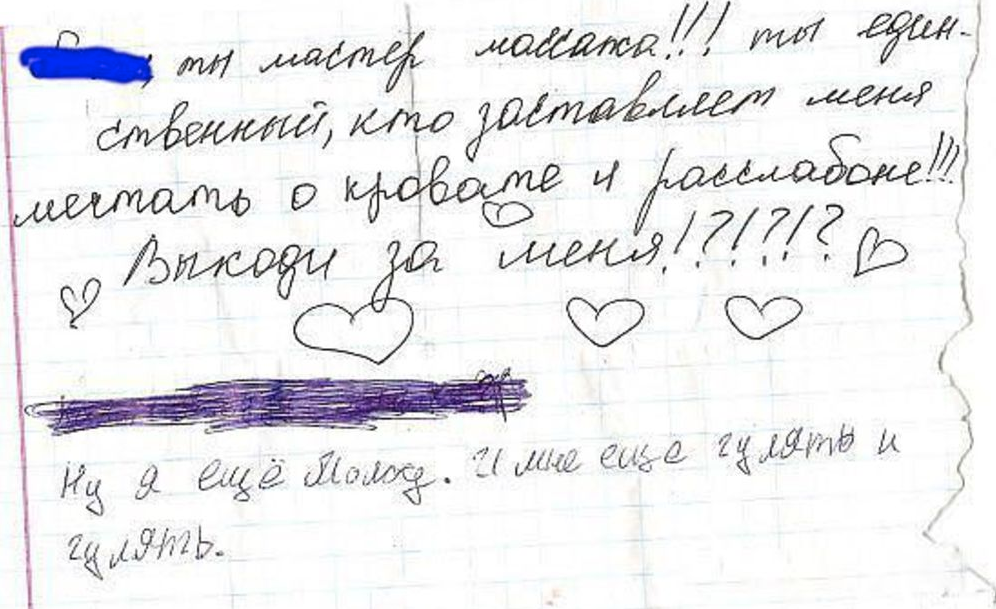 , ты мастер массажа!!! ты един-
ственный, кто заставляет меня
мечтать о кровате и расслабоне!!!
Выходи за меня!?!?!?
Ну я ещё молод. И мне еще гулять и
гулять.